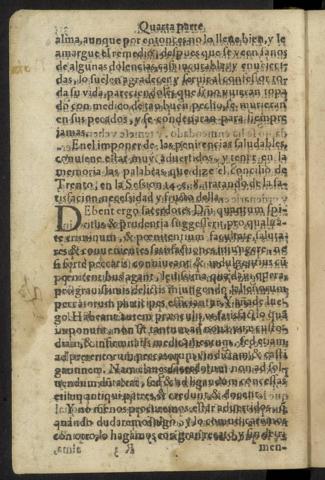 Quarta parte
alma, aunque por entonces no lo lleue bien, y le
amargue el remedio, despues que se veen sanos
de algunas dolencias, casi incurables, y enuejeci-
das, lo suelen agradecer y seruir al confessor to-
da su vida, pareciendoles, que si no vuieran topa
do con medico de tan buen pecho, se murieran
en sus pecados, y se condenaran para siempre
jamas.
En el imponer de las penitencias saludables,
conuiene estar muy aduertidos, y tener en la
memoria las palabras que dize el concilio de
Trento, en la Session 14. tratando de la sa-
tisfacion, necessidad y fruto della.
DEbent ergo sacerdotes Dñi quantum spi-
ritus & prudentia suggesserit, pro quali-
te criminum, & pœnitentium facultate, saluta
res & conuenientes satisfactiones iniungere, ne
si forte peccatis conniueant, & indulgentius cũ
pœnitentibus agant, leuissima quædam opera
pro grauissimis delictis iniungendo, alienorum
peccatorum participes efficiantur. Y añade lue-
go: Habeant autem præ oculis, vt satisfactio quã
imponunt, non sit tantum ad nouæ vitæ custo-
diam, & infirmitatis medicamentum, sed etiam
ad præteritorum peccatorum vindictam, & casti
gationem. Nam claues sacerdotum non ad sol-
uendum duntaxat, sed & ad ligandum concessas
etiam antiqui patres, & credunt, & docent.
Y no menos procuremos estar aduertidos,
quando dudaremos algo, y lo comunicaremos
con otro, lo hagamos con gran recato, y
men-